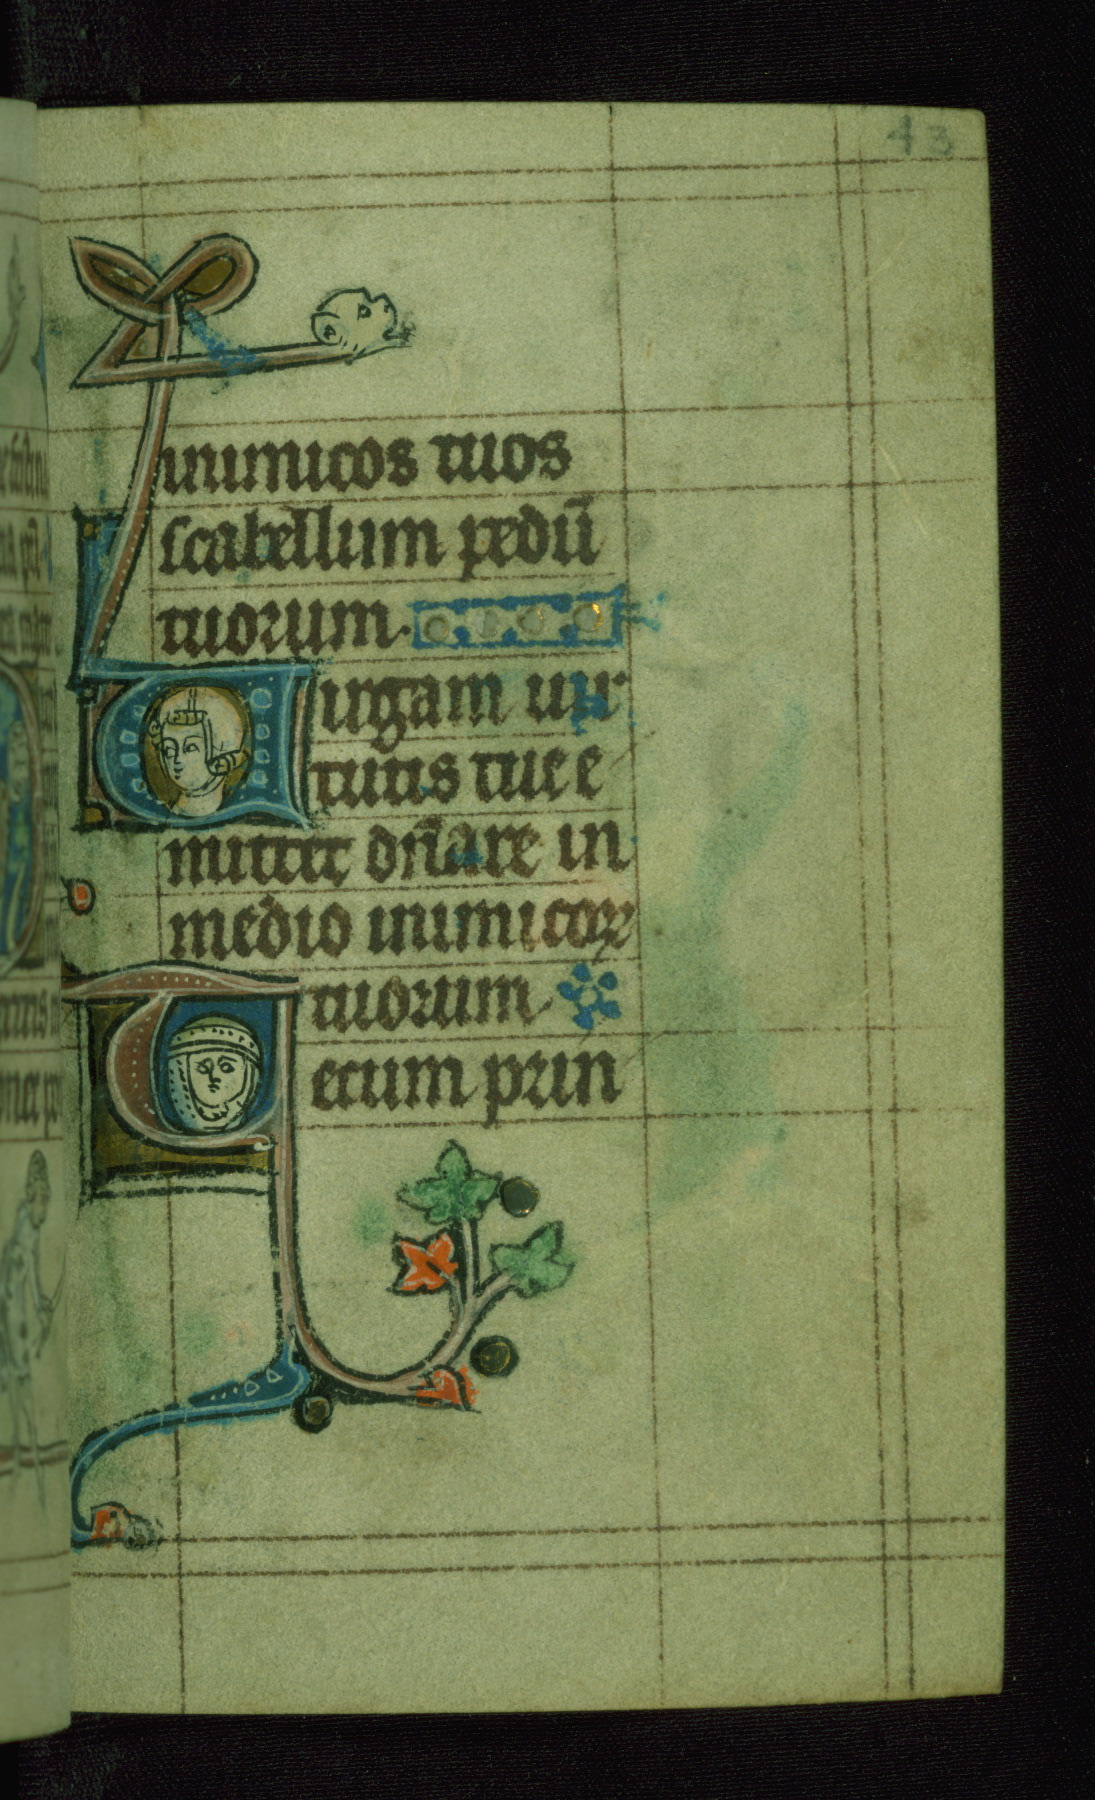 43
inimicos tuos
scabellum pedū
tuorum.
Uirgam uir
tutis tue e
mittet dn̄are in
medio inimicoꝝ
tuorum
Tecum prin